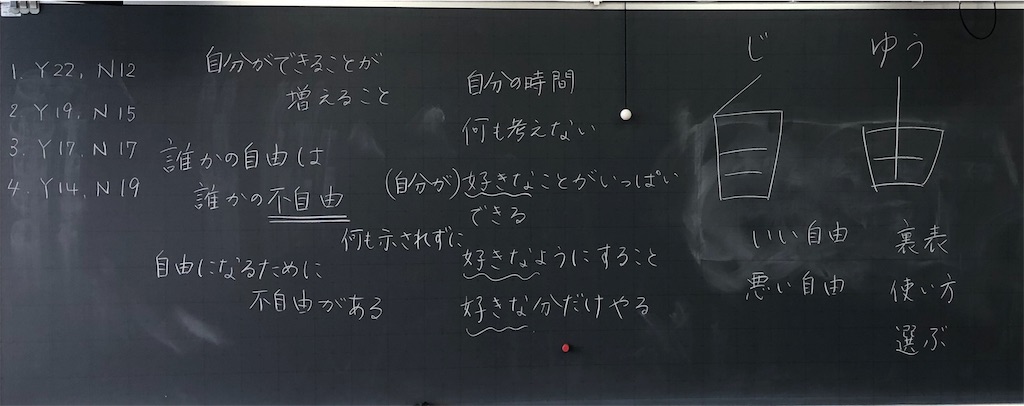 じ ゆう
自由
いい自由
悪い自由
裏表
使い方
選ぶ
自分の時間
何も考えない
(自分が)好きなことがいっぱい
できる
何も示されずに
好きなようにすること
好きな分だけやる
自分ができることが
増えること
誰かの自由は
誰かの不自由
自由になるために
不自由がある
1. Y22, N12
2 Y19, N15
3. Y17, N17
4. Y14, N19